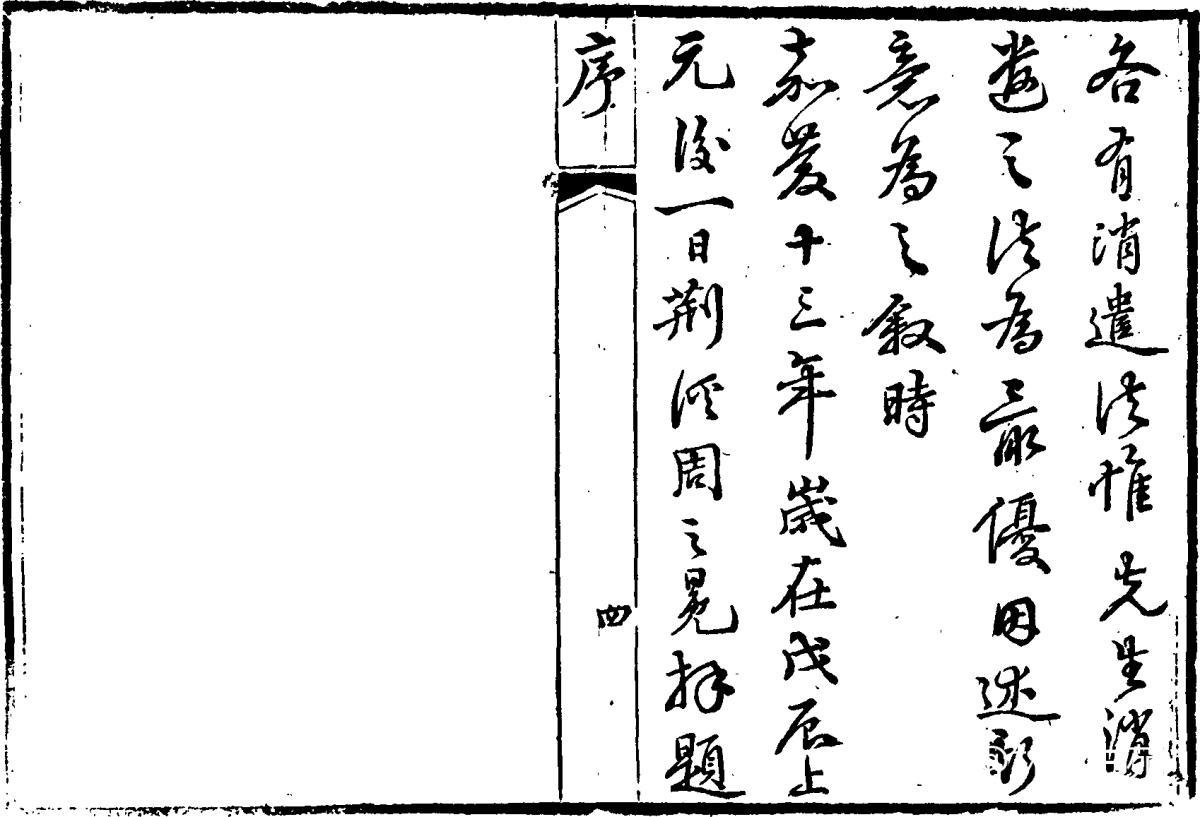 各有消遣法惟先生消
遣之法為最優因述鄙
意為之敘時
嘉慶十三年歲在戊辰上
元後一日荆溪周之冕拜題
序
四